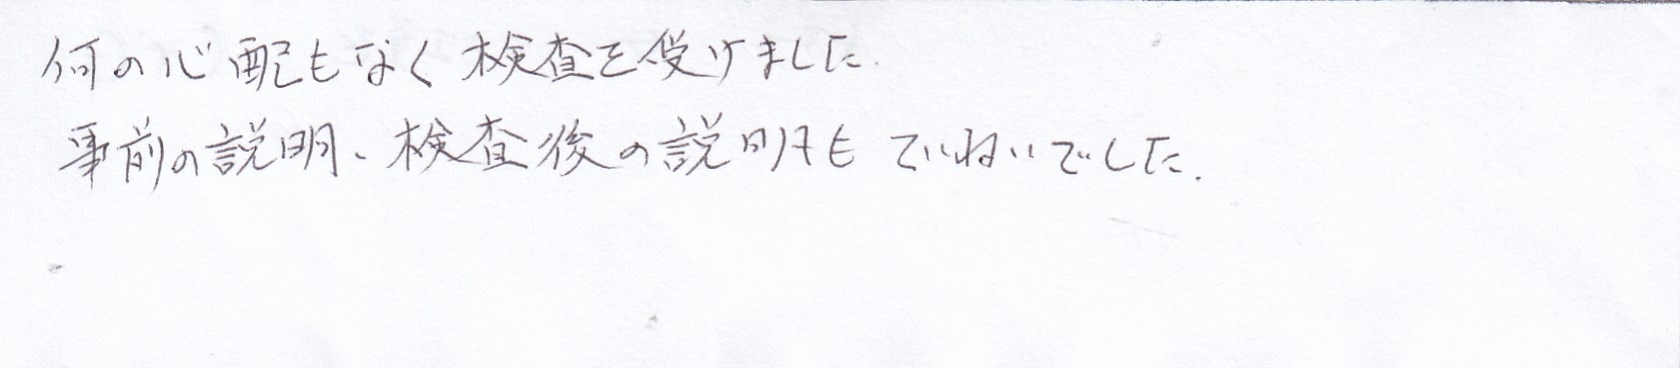 何の心配もなく検査を受けました.
事前の説明、検査後の説明もていねいでした.